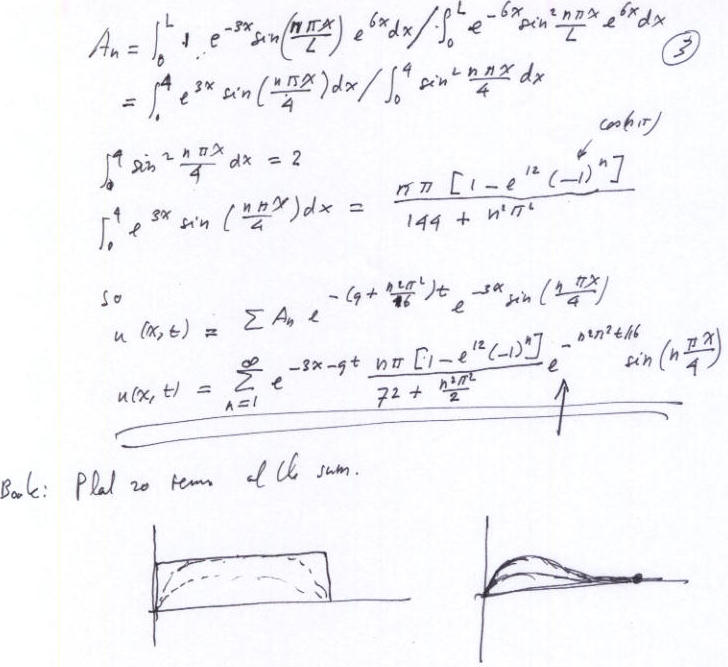 Aₙ = ∫₀ᴸ 1 · e^{-3x} sin(nπx/L) e^{6x} dx / ∫₀ᴸ e^{-6x} sin² nπx/L e^{6x} dx
③
= ∫₀⁴ e^{3x} sin(nπx/4) dx / ∫₀⁴ sin² nπx/4 dx
cos(nπ)
∫₀⁴ sin² nπx/4 dx = 2
∫₀⁴ e^{3x} sin(nπx/4) dx = nπ [1 - e^{12} (-1)ⁿ] / 144 + n²π²
so
u(x,t) = Σ Aₙ e^{-(9 + n²π²/16)t} e^{-3x} sin(nπx/4)
u(x,t) = Σ_{n=1}^{∞} e^{-3x-9t} nπ [1 - e^{12} (-1)ⁿ] / (72 + n²π²/2) e^{-n²π²t/16} sin(nπx/4)
Book: Plot 20 terms of the sum.